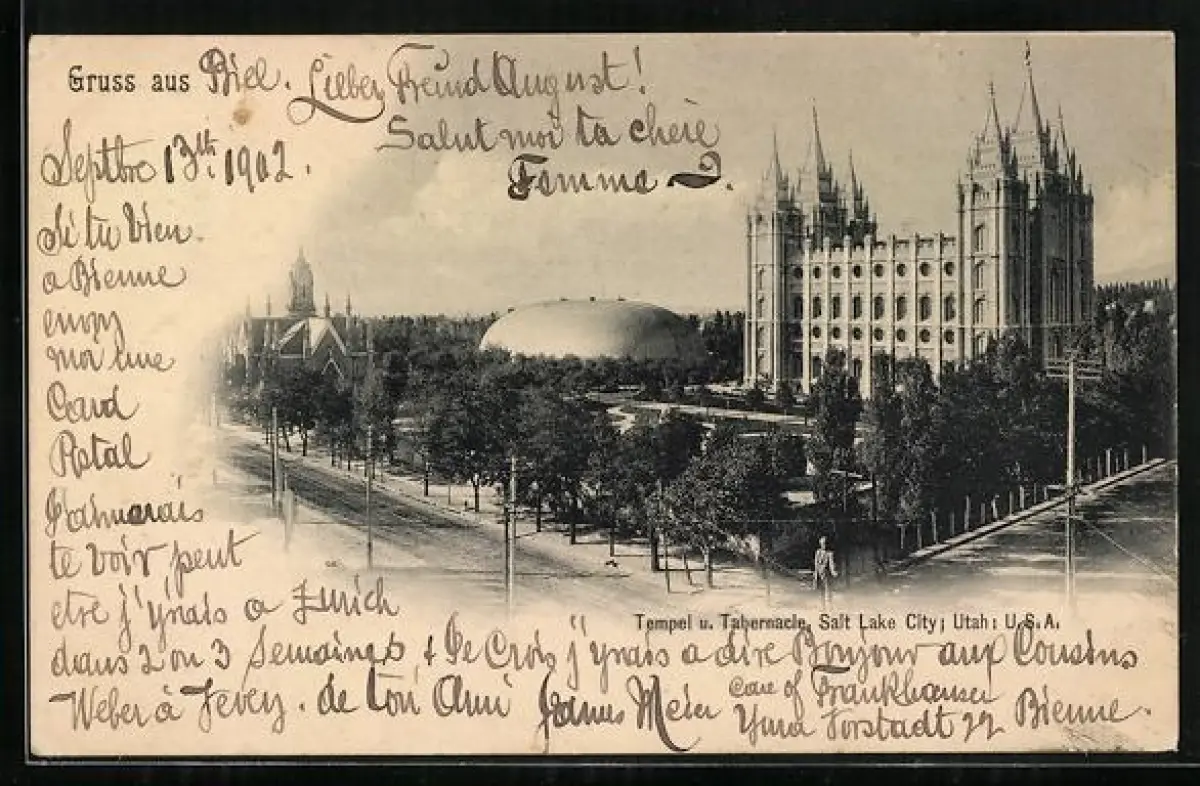 Gruss aus Biel. Lieber Freind August!
Salut moi ta chère
Femme
Septbre 13th 1902.
Si tu vien
a Bienne
envoy
moi une
Card
Postal
J'aimerais
te voir, peut
etre j'yrais a Zurich
dans 2 ou 3 Semaines, & Je Crois j'yrais a dire Bonjour aux Cousins
Weber à Vevey. de ton Ami James Meier
care of Frankhauser
Yura Vorstadt 22 Bienne.
Tempel u. Tabernacle, Salt Lake City; Utah: U.S.A.